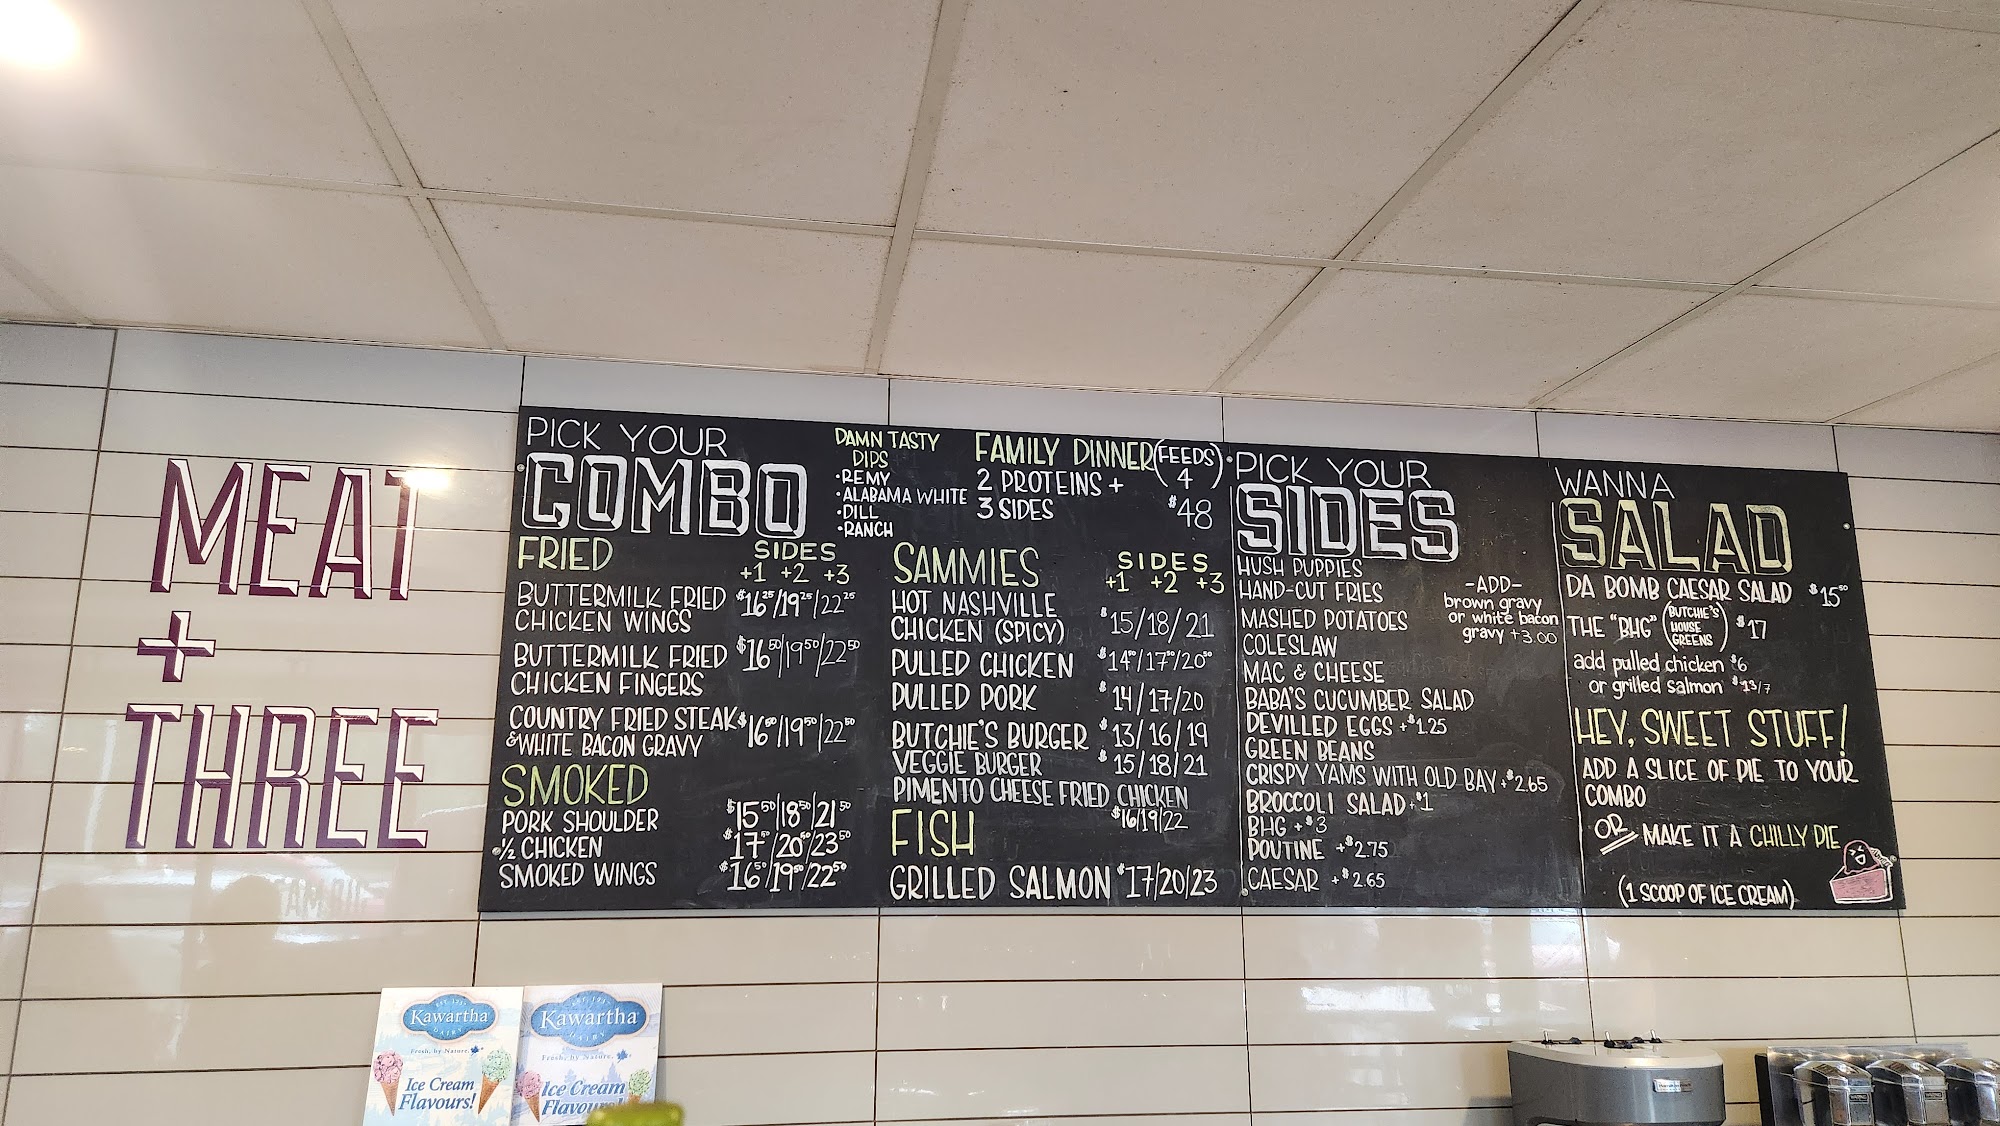 MEAT
+
THREE
PICK YOUR
COMBO
DAMN TASTY
DIPS
•REMY
•ALABAMA WHITE
•DILL
•RANCH
FAMILY DINNER (FEEDS 4)
2 PROTEINS +
3 SIDES $48
FRIED SIDES
+1 +2 +3
BUTTERMILK FRIED $16²⁵/19²⁵/22²⁵
CHICKEN WINGS
BUTTERMILK FRIED $16⁵⁰/19⁵⁰/22⁵⁰
CHICKEN FINGERS
COUNTRY FRIED STEAK $16⁵⁰/19⁵⁰/22⁵⁰
&WHITE BACON GRAVY
SMOKED
PORK SHOULDER $15⁵⁰/18⁵⁰/21⁵⁰
½ CHICKEN $17⁵⁰/20⁵⁰/23⁵⁰
SMOKED WINGS $16⁵⁰/19⁵⁰/22⁵⁰
SAMMIES SIDES
+1 +2 +3
HOT NASHVILLE
CHICKEN (SPICY) $15/18/21
PULLED CHICKEN $14⁵⁰/17⁵⁰/20⁵⁰
PULLED PORK $14/17/20
BUTCHIE'S BURGER $13/16/19
VEGGIE BURGER $15/18/21
PIMENTO CHEESE FRIED CHICKEN
$16/19/22
FISH
GRILLED SALMON $17/20/23
PICK YOUR
SIDES
HUSH PUPPIES
HAND-CUT FRIES
MASHED POTATOES
COLESLAW
MAC & CHEESE
BABA'S CUCUMBER SALAD
DEVILLED EGGS +$1.25
GREEN BEANS
CRISPY YAMS WITH OLD BAY +$2.65
BROCCOLI SALAD +$1
BHG +$3
POUTINE +$2.75
CAESAR +$2.65
-ADD-
brown gravy
or white bacon
gravy +3.00
WANNA
SALAD
DA BOMB CAESAR SALAD $15⁵⁰
THE "BHG" (BUTCHIE'S HOUSE GREENS) $17
add pulled chicken $6
or grilled salmon $13/7
HEY, SWEET STUFF!
ADD A SLICE OF PIE TO YOUR
COMBO
OR MAKE IT A CHILLY PIE
(1 SCOOP OF ICE CREAM)
EST. 1937
Kawartha
DAIRY
Fresh, by Nature.
Ice Cream
Flavours!
EST. 1937
Kawartha
DAIRY
Fresh, by Nature.
Ice Cream
Flavours!